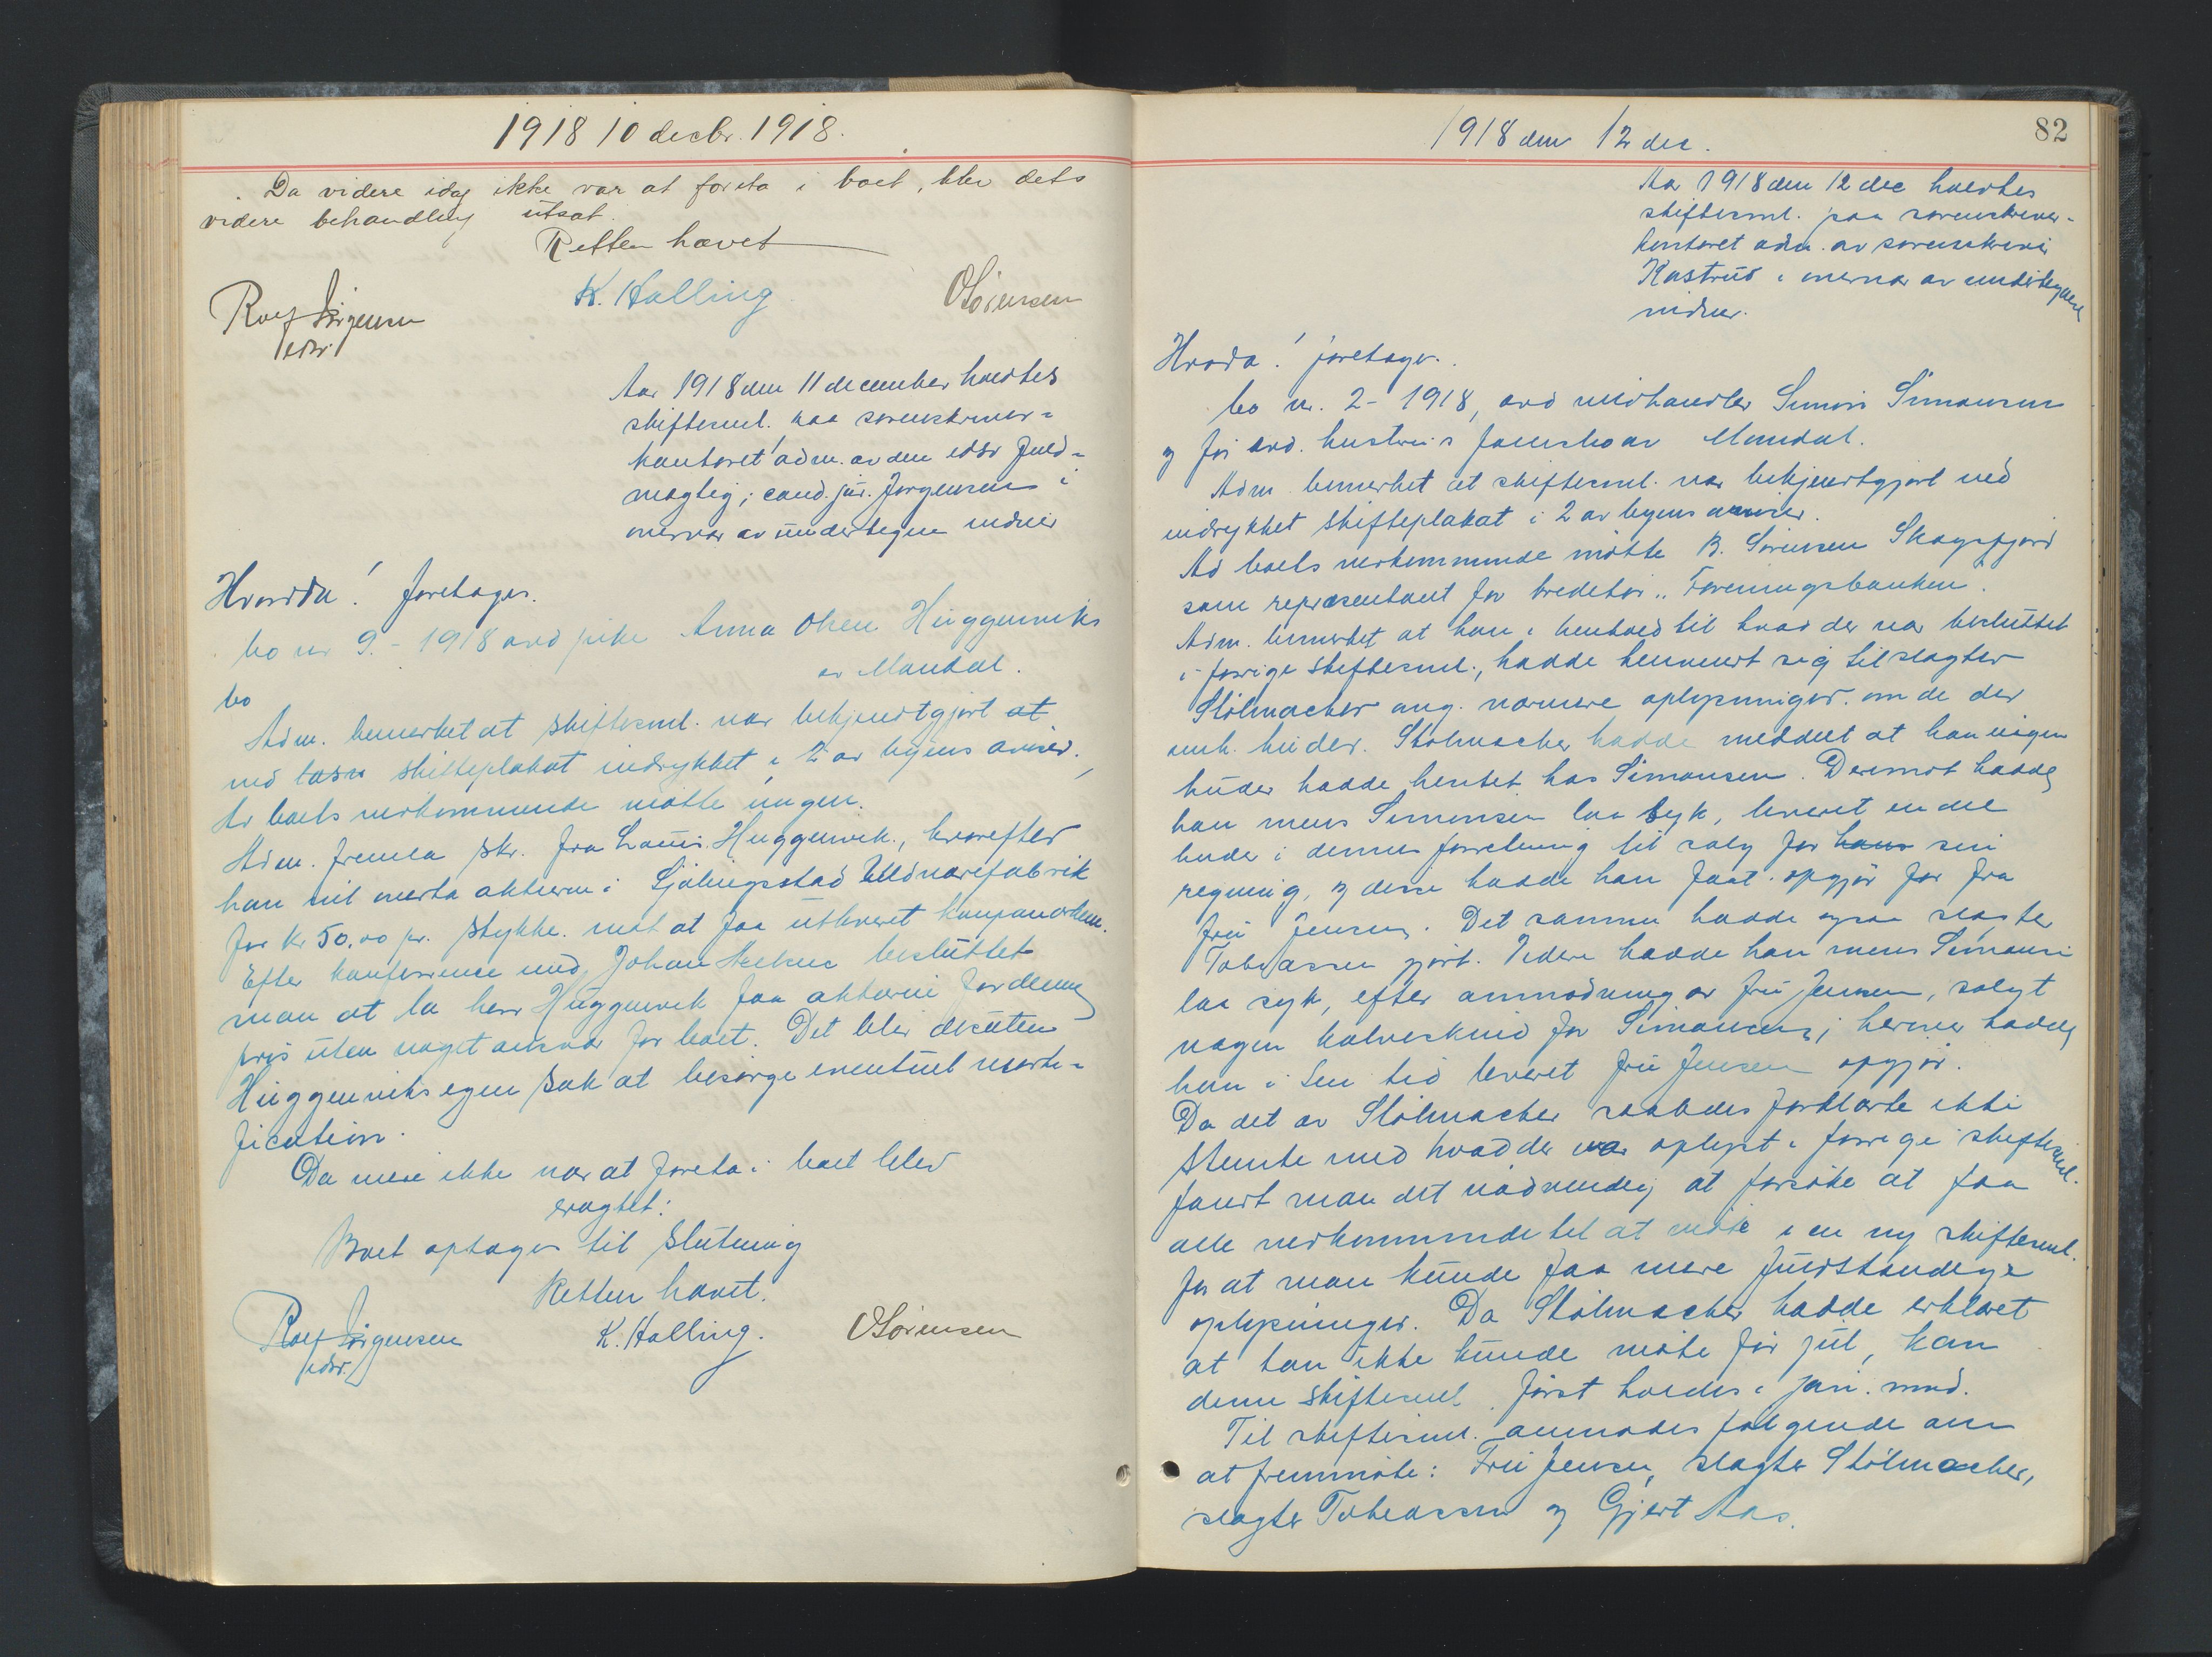 1918 10 decbr. 1918.
Da videre idag ikke var at foreta i boet, blev dets
videre behandling utsat.
Retten hævet
Rolf Jörgensen K. Halling OSörensen
edsv.
Aar 1918 den 11 december holdtes
skiftesml. paa sorenskriver-
kontoret adm. av den edsv fuld-
mægtig, cand. jur. Jørgensen i
overvær av undertegn vidner
Hvorda! foretages.
bo nr 9. - 1918 avd pike Anna Olsen Huggenviks
bo av Mandal.
Adm. bemerket at skiftesml. var bekjendtgjort at
ved skifteplakat indrykket i 2 av byens aviser.
Av boets vedkommende mötte ingen.
Adm. fremla skr. fra Louis Huggenvik, hvorefter
han vil overta aktierne i Sjölingstad Uldvarefabrik
for kr 50,00 pr. stykke. mot at faa utleveret kuponarkene.
Efter konference med Johan besluttet
man at la herr Huggenvik faa aktierne for denne
pris uten noget ansvar for boet. Det blev desuten
Huggenviks egen sak at besörge eventuel morti-
fication.
Da mere ikke var at foreta i boet blev
eragtet:
Boet optages til slutning
Retten hævet.
Rolf Jörgensen K. Halling. OSörensen
edsv.
1918 den 12 dec.
82
Aar 1918 den 12 dec holdtes
skiftesml. paa sorenskriver-
kontoret adm. av sorenskriver
Kastrud i overvær av undertegnede
vidner.
Hvorda! foretages.
bo nr. 2 - 1918, avd vildhandler Simon Simonsen
og før avd. hustru's fællesbo av Mandal.
Adm bemerket at skiftesml. var bekjendtgjort ved
indrykket skifteplakat i 2 av byens aviser.
Av boets vedkommende mötte B. Sörensen Skogsfjord
som repræsentant for kreditor "Foreningsbanken".
Adm. bemerket at han i henhold til hvad der var besluttet
i forrige skiftesml., hadde henvendt sig til slagter
Stölmacher ang. nærmere oplysninger om de der
omh. huder. Stölmacher hadde meddelt at han ingen
huder hadde hentet hos Simonsen. Derimot hadde
han mens Simonsen laa syk, leveret en del
huder i dennes forretning til salg for hans sin
regning, og disse hadde han faat opgjör for fra
fru Jensen. Det samme hadde ogsaa slagter
Tobiassen gjort. Videre hadde han mens Simonsen
laa syk, efter anmodning av fru Jensen, solgt
nogen kalveskind for Simonsen; herover hadde
han i sin tid leveret fru Jensen opgjör.
Da det av Stölmacher saaledes forklarte ikke
stemte med hvad der var oplyst i forrige skiftesml.
fandt man det nödvendig at forsöke at faa
alle vedkommende til at möte i en ny skiftesml.
for at man kunde faa mere fuldstændige
oplysninger. Da Stölmacher hadde erklæret
at han ikke kunde möte för jul, kan
denne skiftesml först holdes i jan. mnd.
Til skiftesml. anmodes fölgende om
at fremmöte: Fru Jensen, slagter Stölmacher,
slagter Tobiassen og Gjert Aas.